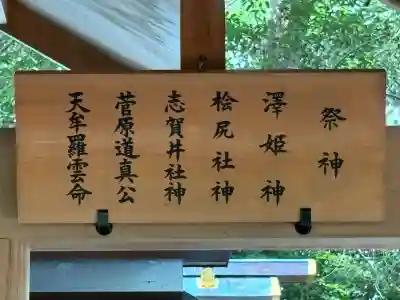 祭神
澤姫神
桧尻社神
志賀井社神
菅原道真公
天牟羅雲命